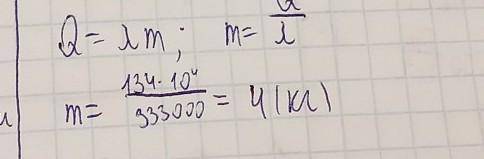 Q = λm; m = Q/λ
m = 134·10⁴/333000 = 4(кг)